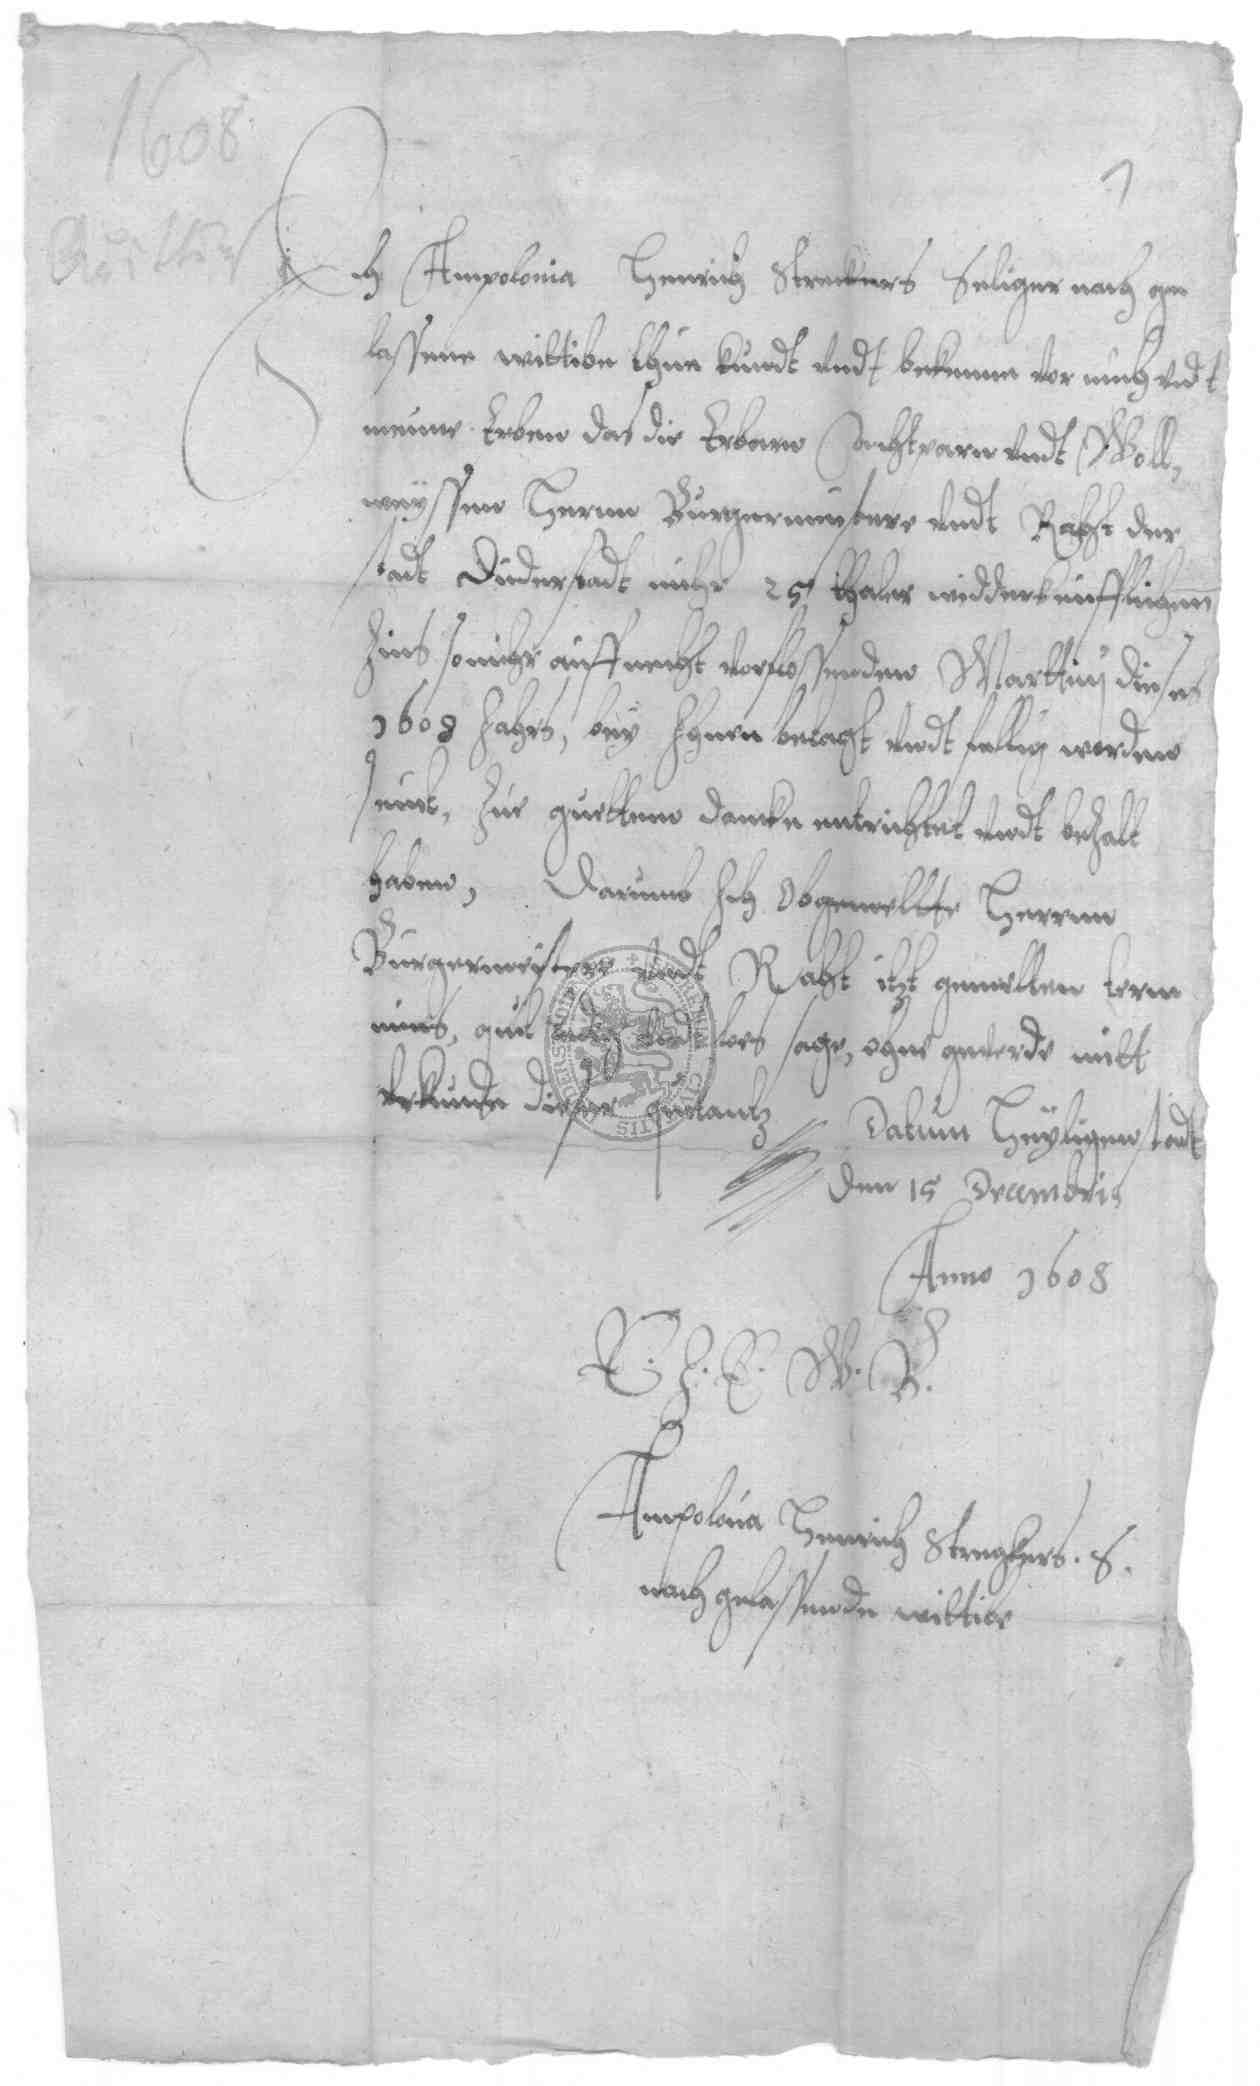 1608
1
Ich Ampolonia Henrich Streckers Seliger nach ge
lassene wittibe thue kundt undt bekenne vor mich undt
meine Erben das die Erbare Achtpare undt Woll,
weyssen Herrn Burgermeistere undt Raht der
stadt Duderstadt mihr 25 thaler widderkeufflichen
Zins so mihr auff necht verflossenden Martiny dieses
1608 Jahrs, bey Ihnen betagt undt fellig worden
seint, Zur guettem dancke entrichtet undt bezalt
haben, Darumb Ich Obgemellte Herrnn
Burgermeistere undt Raht itzt gemelten term
mins, quit undt los sage, ohne geverde mitt
Urkunde dieser quitantz Datum Heyligenstadt
den 15 Decembris
Anno 1608
E. E. W. W.
Ampolonia Henrich Streghers. S.
nach gelassende wittibe